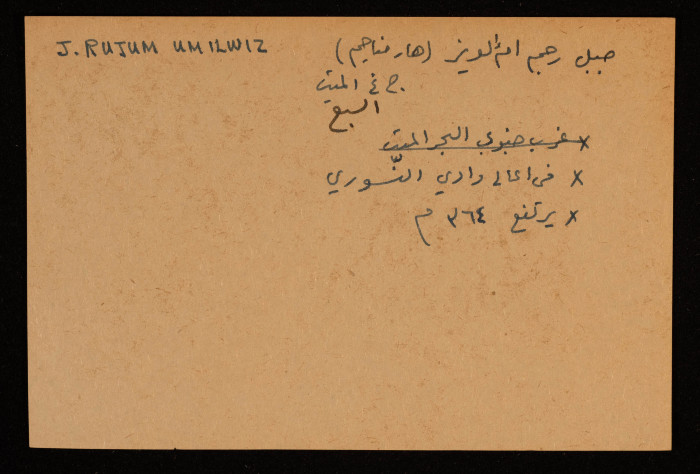 J. RUJUM UMILWIZ
جبل رجم ام الويز (هار مناحيم)
ج غ الميت
السبع
x غرب جنوبي البحر الميت
x في اعالي وادي النّسوري
x يرتفع ٣٦٤ م